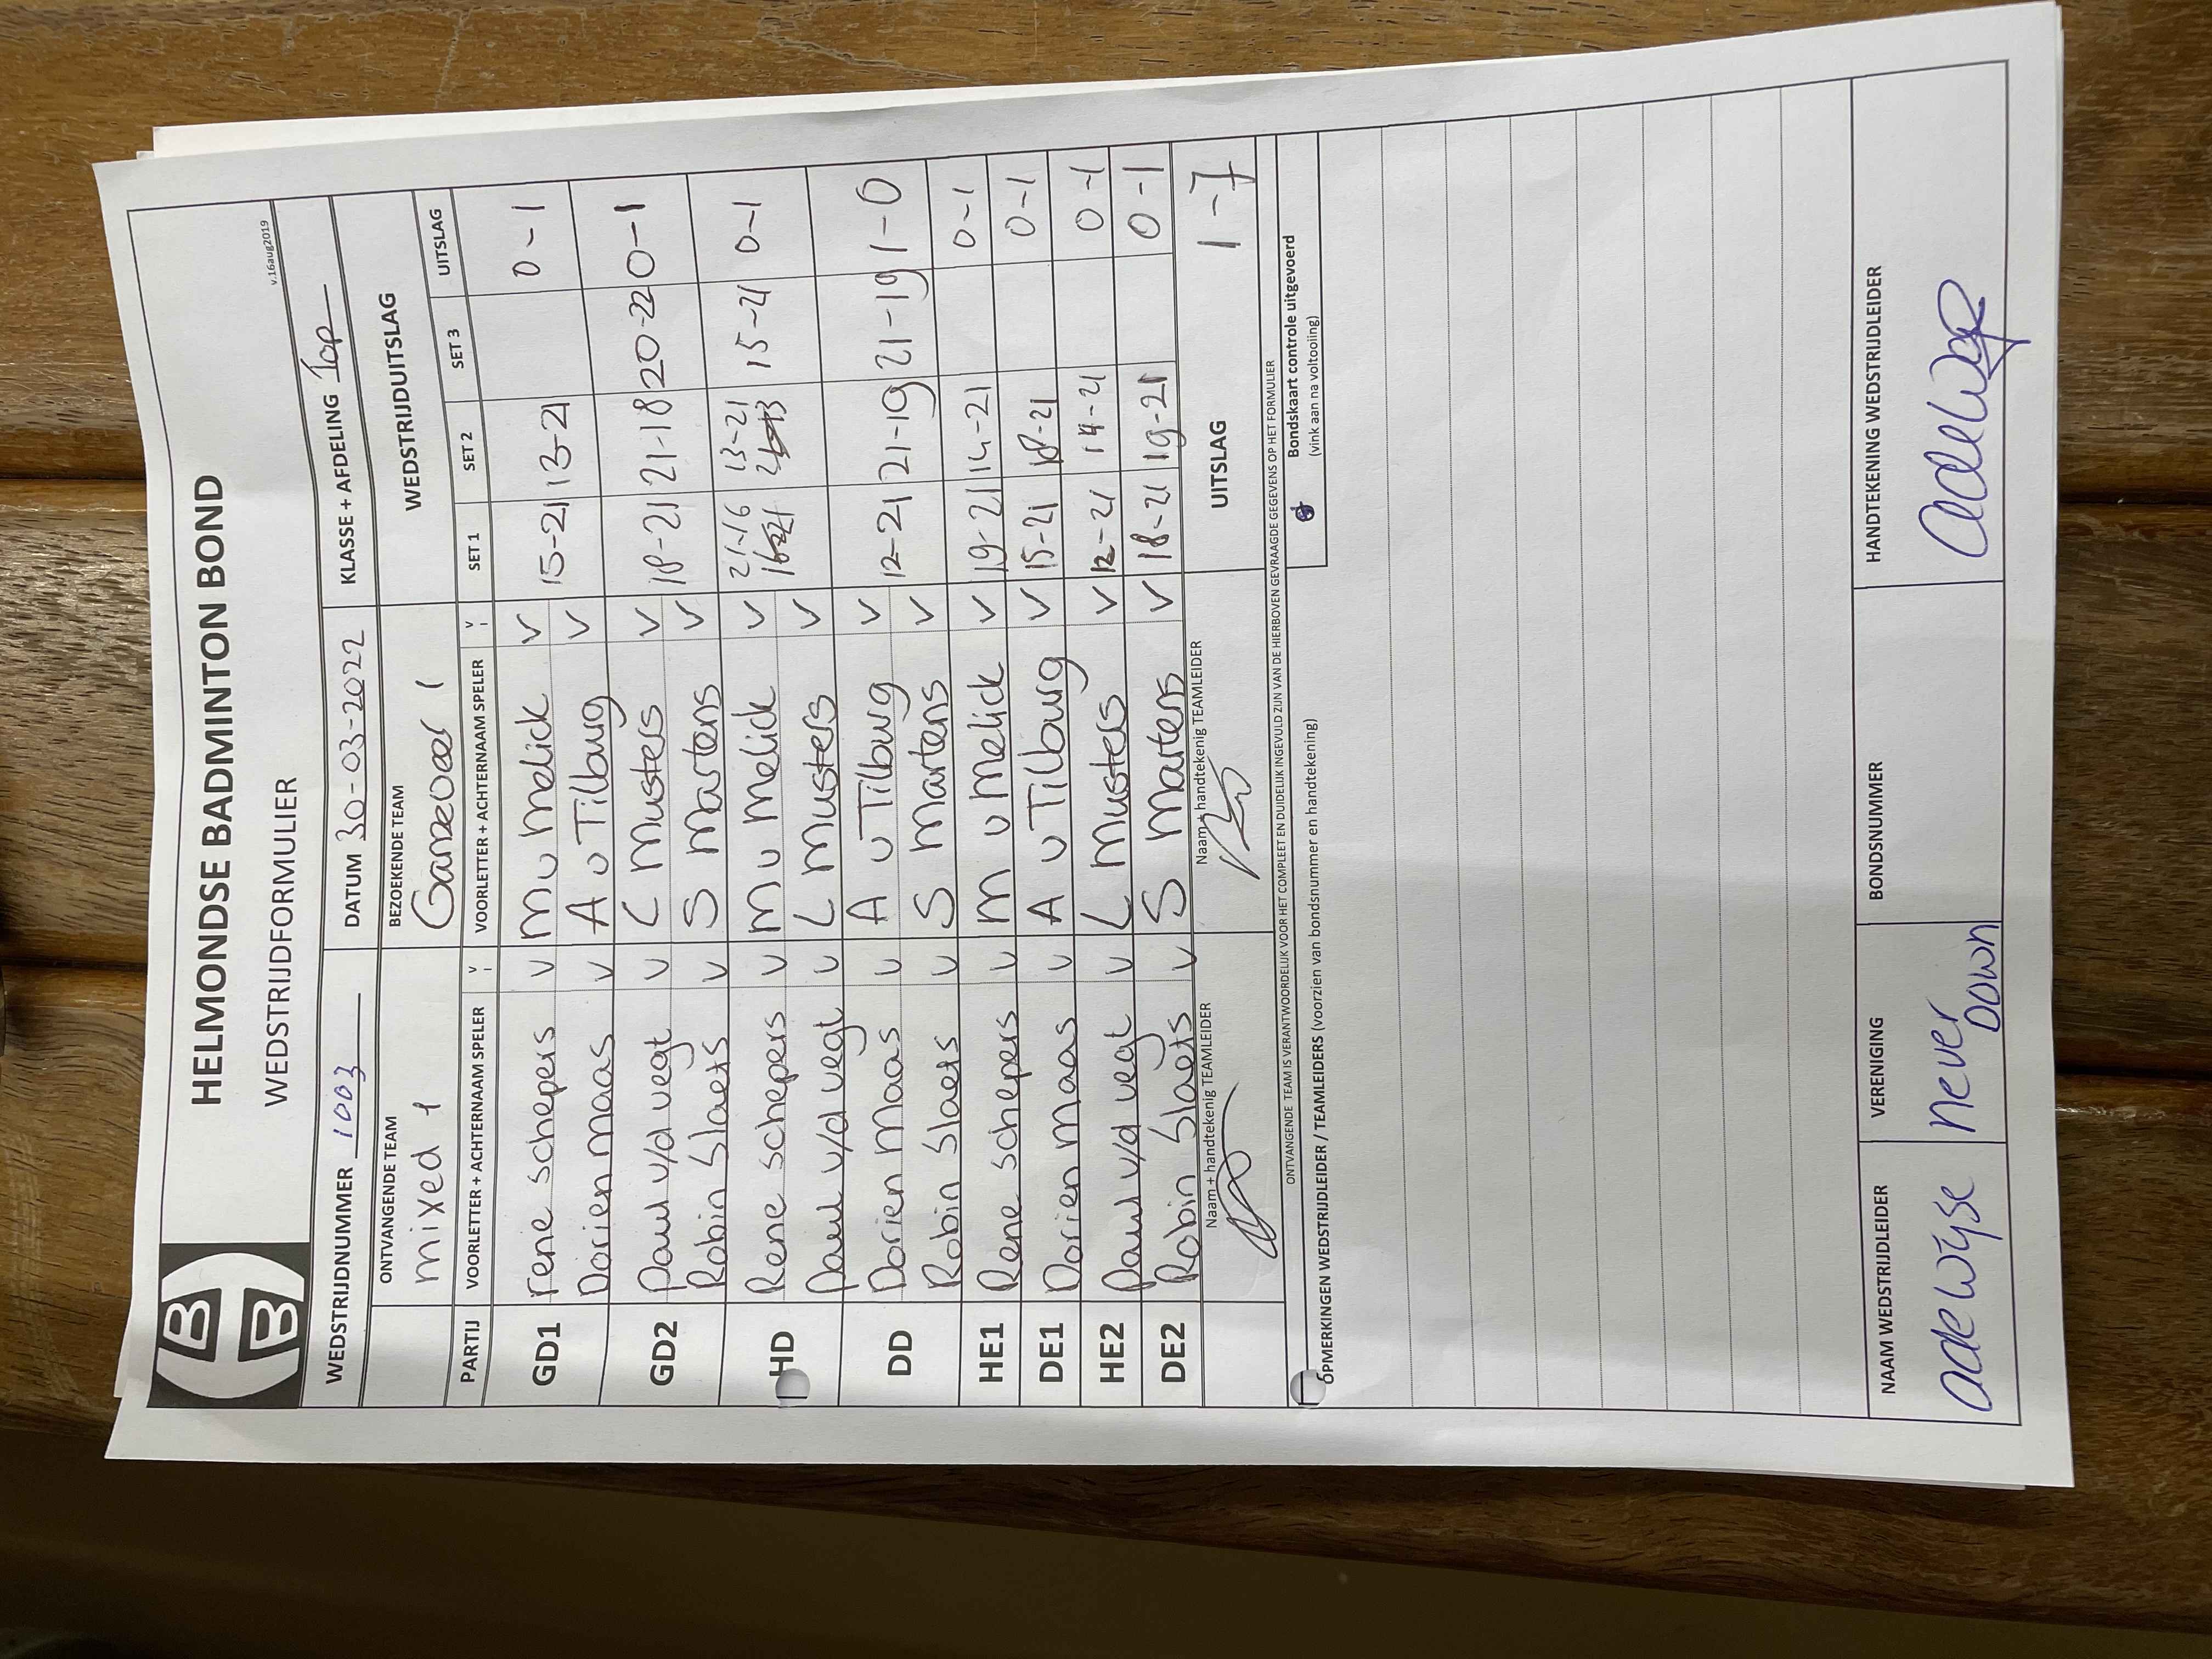 HELMONDSE BADMINTON BOND
WEDSTRIJDFORMULIER
v.16aug2019
WEDSTRIJDNUMMER 1003 DATUM 30-03-2022 KLASSE + AFDELING Top
ONTVANGENDE TEAM BEZOEKENDE TEAM WEDSTRIJDUITSLAG
mixed 1 Gamever 1
PARTIJ VOORLETTER + ACHTERNAAM SPELER V VOORLETTER + ACHTERNAAM SPELER V SET 1 SET 2 SET 3 UITSLAG
GD1 rene schepers v M v Melick v 15-21 13-21 0-1
Dorien Maas v A v Tilburg v
GD2 Paul v/d vegt v L Musters v 18-21 21-18 20-22 0-1
Robin Slaets v S Martens v
HD Rene schepers v M v Melick v 21-16 13-21 15-21 0-1
Paul v/d vegt v L Musters v
DD Dorien Maas v A v Tilburg v 12-21 21-19 21-19 1-0
Robin Slaets v S Martens v
HE1 Rene schepers v M v Melick v 19-21 14-21 0-1
DE1 Dorien Maas v A v Tilburg v 15-21 18-21 0-1
HE2 Paul v/d vegt v L Musters v 12-21 14-21 0-1
DE2 Robin Slaets v S Martens v 18-21 19-21 0-1
Naam + handtekenig TEAMLEIDER Naam + handtekenig TEAMLEIDER UITSLAG 1-7
ONTVANGENDE TEAM IS VERANTWOORDELIJK VOOR HET COMPLEET EN DUIDELIJK INGEVULD ZIJN VAN DE HIERBOVEN GEVRAAGDE GEGEVENS OP HET FORMULIER
Bondskaart controle uitgevoerd
(vink aan na voltooiing)
OPMERKINGEN WEDSTRIJDLEIDER / TEAMLEIDERS (voorzien van bondsnummer en handtekening)
NAAM WEDSTRIJDLEIDER VERENIGING BONDSNUMMER HANDTEKENING WEDSTRIJDLEIDER
ade wijse never
Down